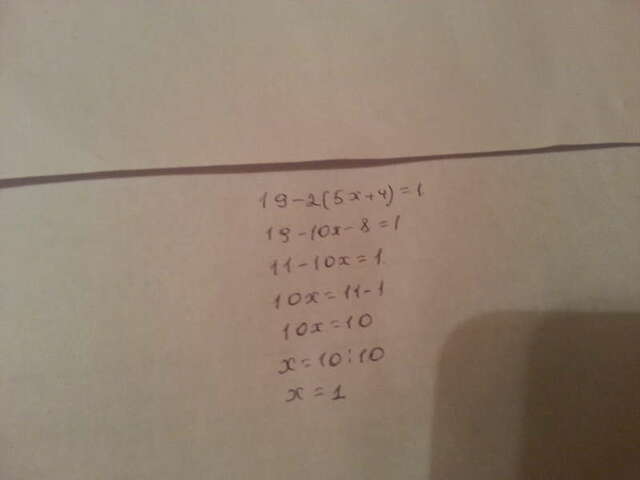 19-2(5x+4)=1
19-10x-8=1
11-10x=1
10x=11-1
10x=10
x=10:10
x=1